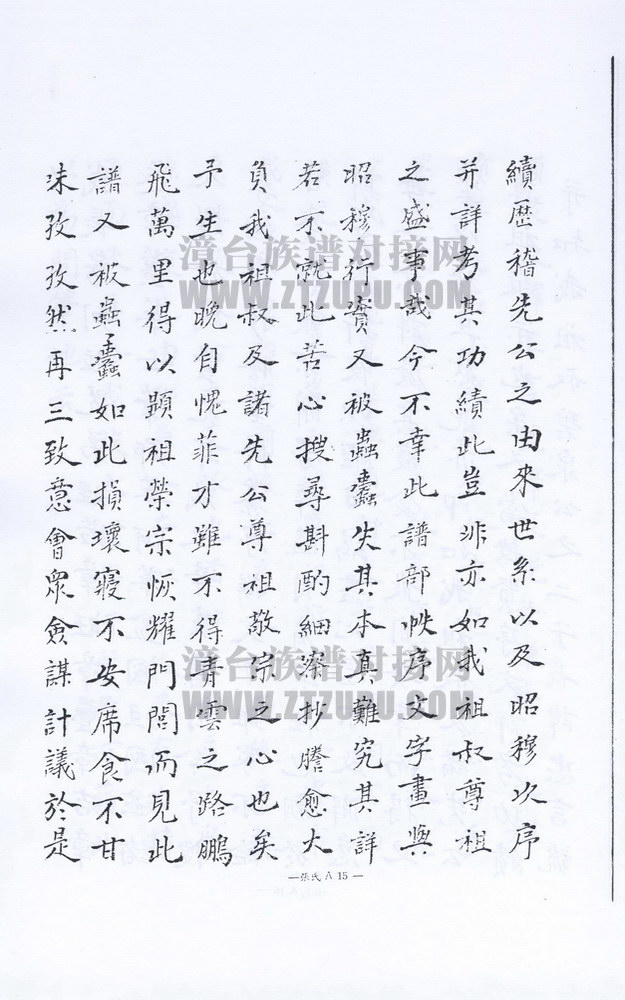 續歷稽先公之由來世系以及昭穆次序
并詳考其功績此豈非亦如我祖叔尊祖
之盛事哉今不幸此譜部帙序文字畫與
昭穆行實又被蟲蠹失其本真難究其詳
若不就此苦心搜尋斟酌細察抄謄愈大
負我祖叔及諸先公尊祖敬宗之心也矣
予生也晚自愧菲才雖不得青雲之路鵬
飛萬里得以顯祖榮宗恢耀門閭而見此
譜又被蟲蠹如此損壞寢不安席食不甘
味孜孜然再三致意會眾僉謀計議於是
—張氏 A 15—
漳台族谱对接网
WWW.ZTZUPU.COM
漳台族谱对接网
WWW.ZTZUPU.COM